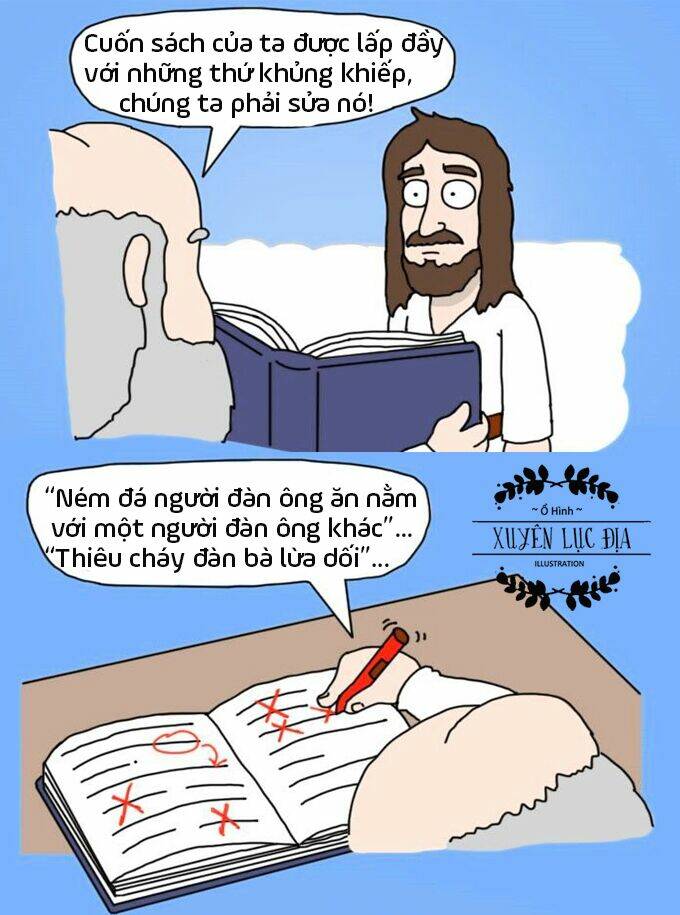 Cuốn sách của ta được lấp đầy
với những thứ khủng khiếp,
chúng ta phải sửa nó!
“Ném đá người đàn ông ăn nằm
với một người đàn ông khác”...
“Thiêu cháy đàn bà lừa dối”...
~ Ổ Hình ~
XUYÊN LỤC ĐỊA
ILLUSTRATION